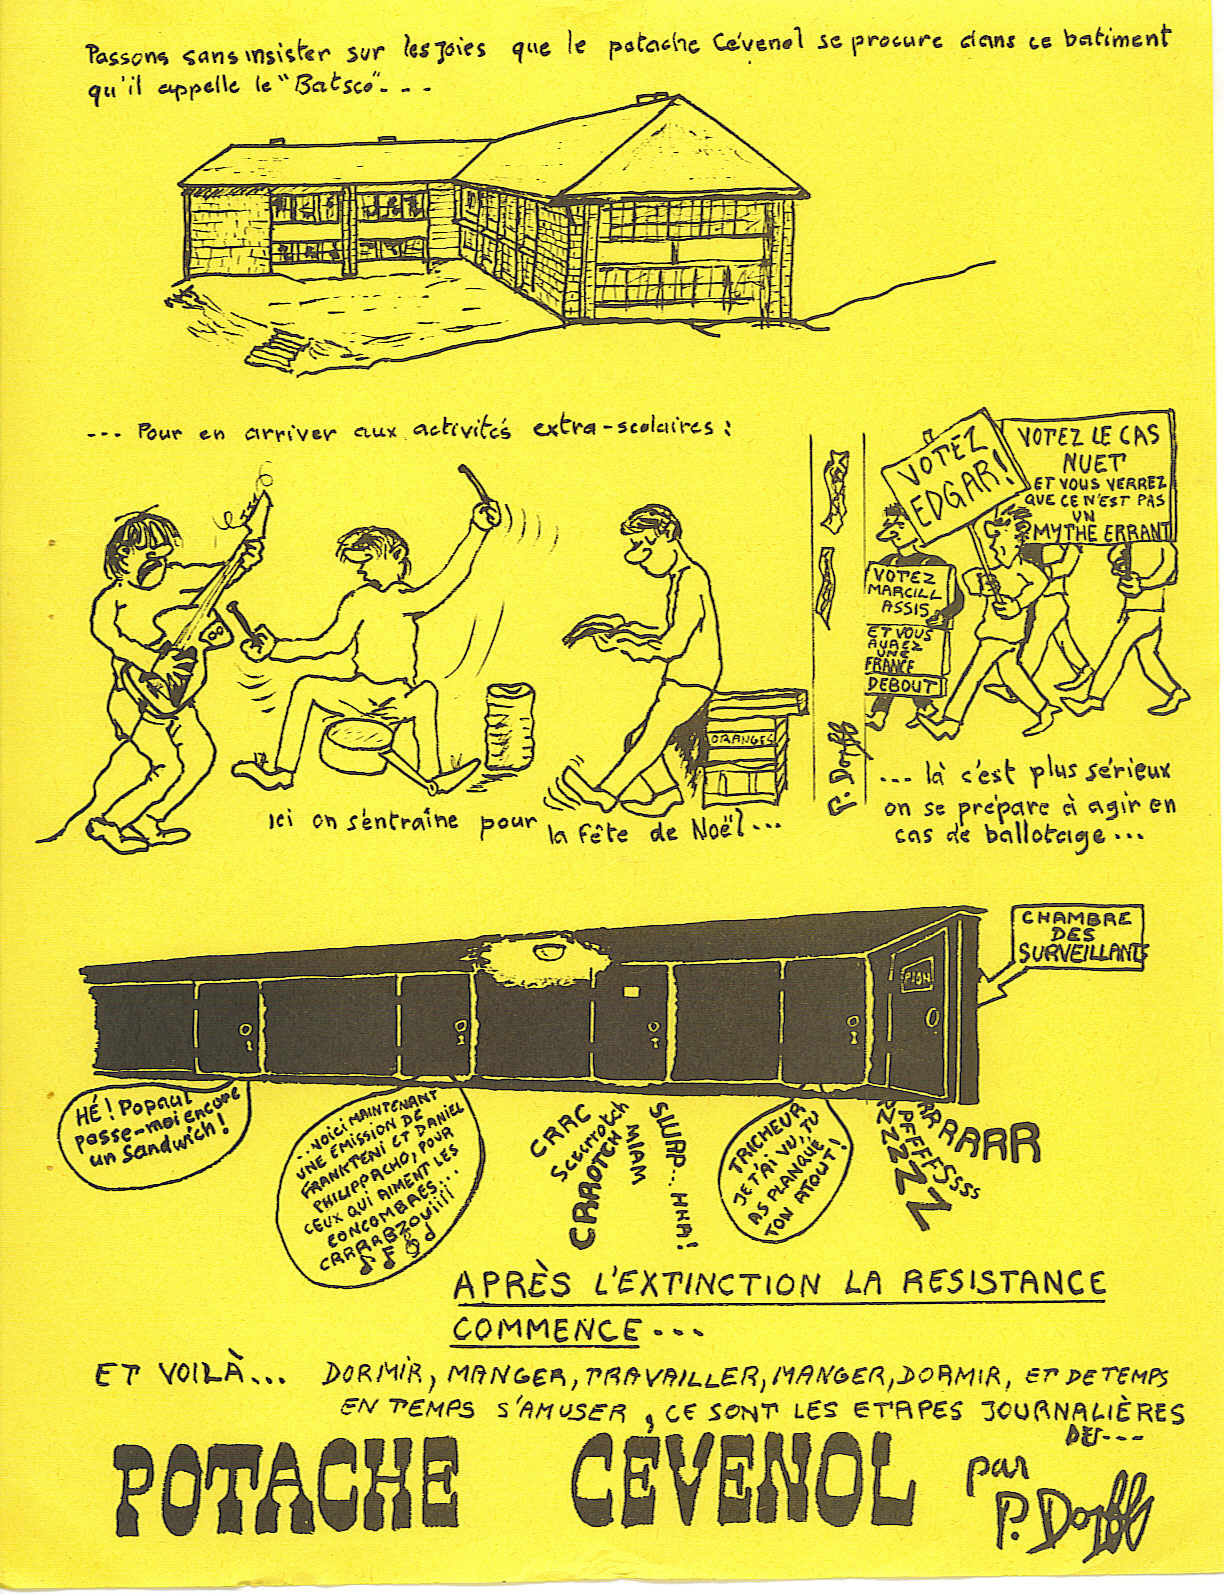 Passons sans insister sur les joies que le potache Cévenol se procure dans ce batiment
qu'il appelle le "Batsco"...
... Pour en arriver aux activités extra-scolaires :
VOTEZ
EDGAR!
VOTEZ LE CAS
NUET
ET VOUS VERREZ
QUE CE N'EST PAS
UN
MYTHE ERRANT
VOTEZ
MARCILL
ASSIS
ET VOUS
AUREZ
UNE
FRANCE
DEBOUT
ORANGES
P. Dorffs
ici on s'entraîne pour la fête de Noël...
... là c'est plus sérieux
on se prépare à agir en
cas de ballotage...
CHAMBRE
DES
SURVEILLANTS
PION
HÉ! Popaul
passe-moi encore
un sandwich!
...VOICI MAINTENANT
UNE ÉMISSION DE
FRANKTENI ET DANIEL
PHILIPPACHO, POUR
CEUX QUI AIMENT LES
CONCOMBRES...
CRRRRBZOUIIII
CRRC
Scerrotch
CRROTCH
MIAM
SLURP... HHA!
TRICHEUR
JE T'AI VU, TU
AS PLANQUÉ
TON ATOUT!
RZZZZZ
PFFFFFSSSS
RRRARRR
APRÈS L'EXTINCTION LA RESISTANCE
COMMENCE...
ET VOILÀ... DORMIR, MANGER, TRAVAILLER, MANGER, DORMIR, ET DE TEMPS
EN TEMPS S'AMUSER, CE SONT LES ETAPES JOURNALIÈRES
DU...
POTACHE CÉVENOL
par
P. Dorffs